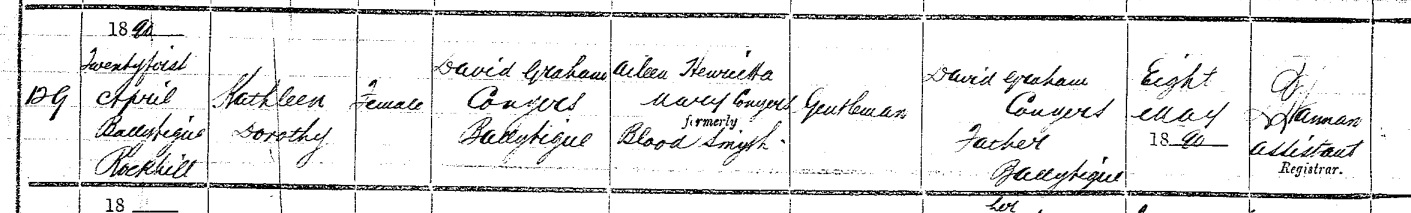 1890
Twentyfirst
April
Ballyteigue
Rockhill
129
Kathleen
Dorothy
Female
David Graham
Conyers
Ballyteigue
Aileen Henrietta
Mary Conyers
formerly
Blood Smyth
Gentleman
David Graham
Conyers
Father
Ballyteigue
Eight
May
1890
Hannan
Assistant
Registrar.
18
her